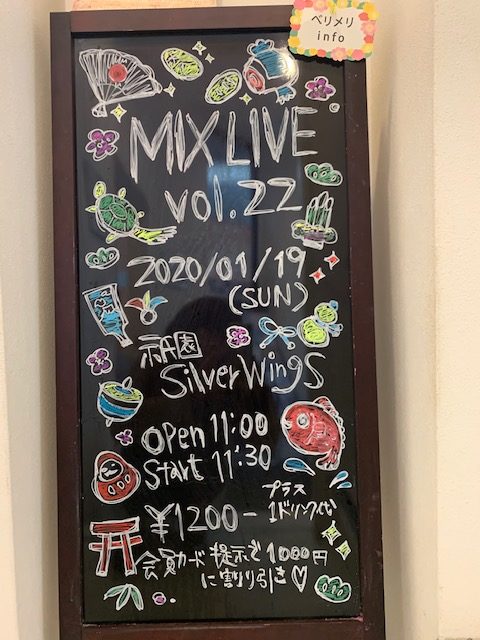 ベリメリ
info
MIX LIVE
vol.22
2020/01/19
(SUN)
祇園
SilverWings
open 11:00
Start 11:30
¥1200-
プラス
1ドリンク代
会員カード提示で1000円
に割り引き♡